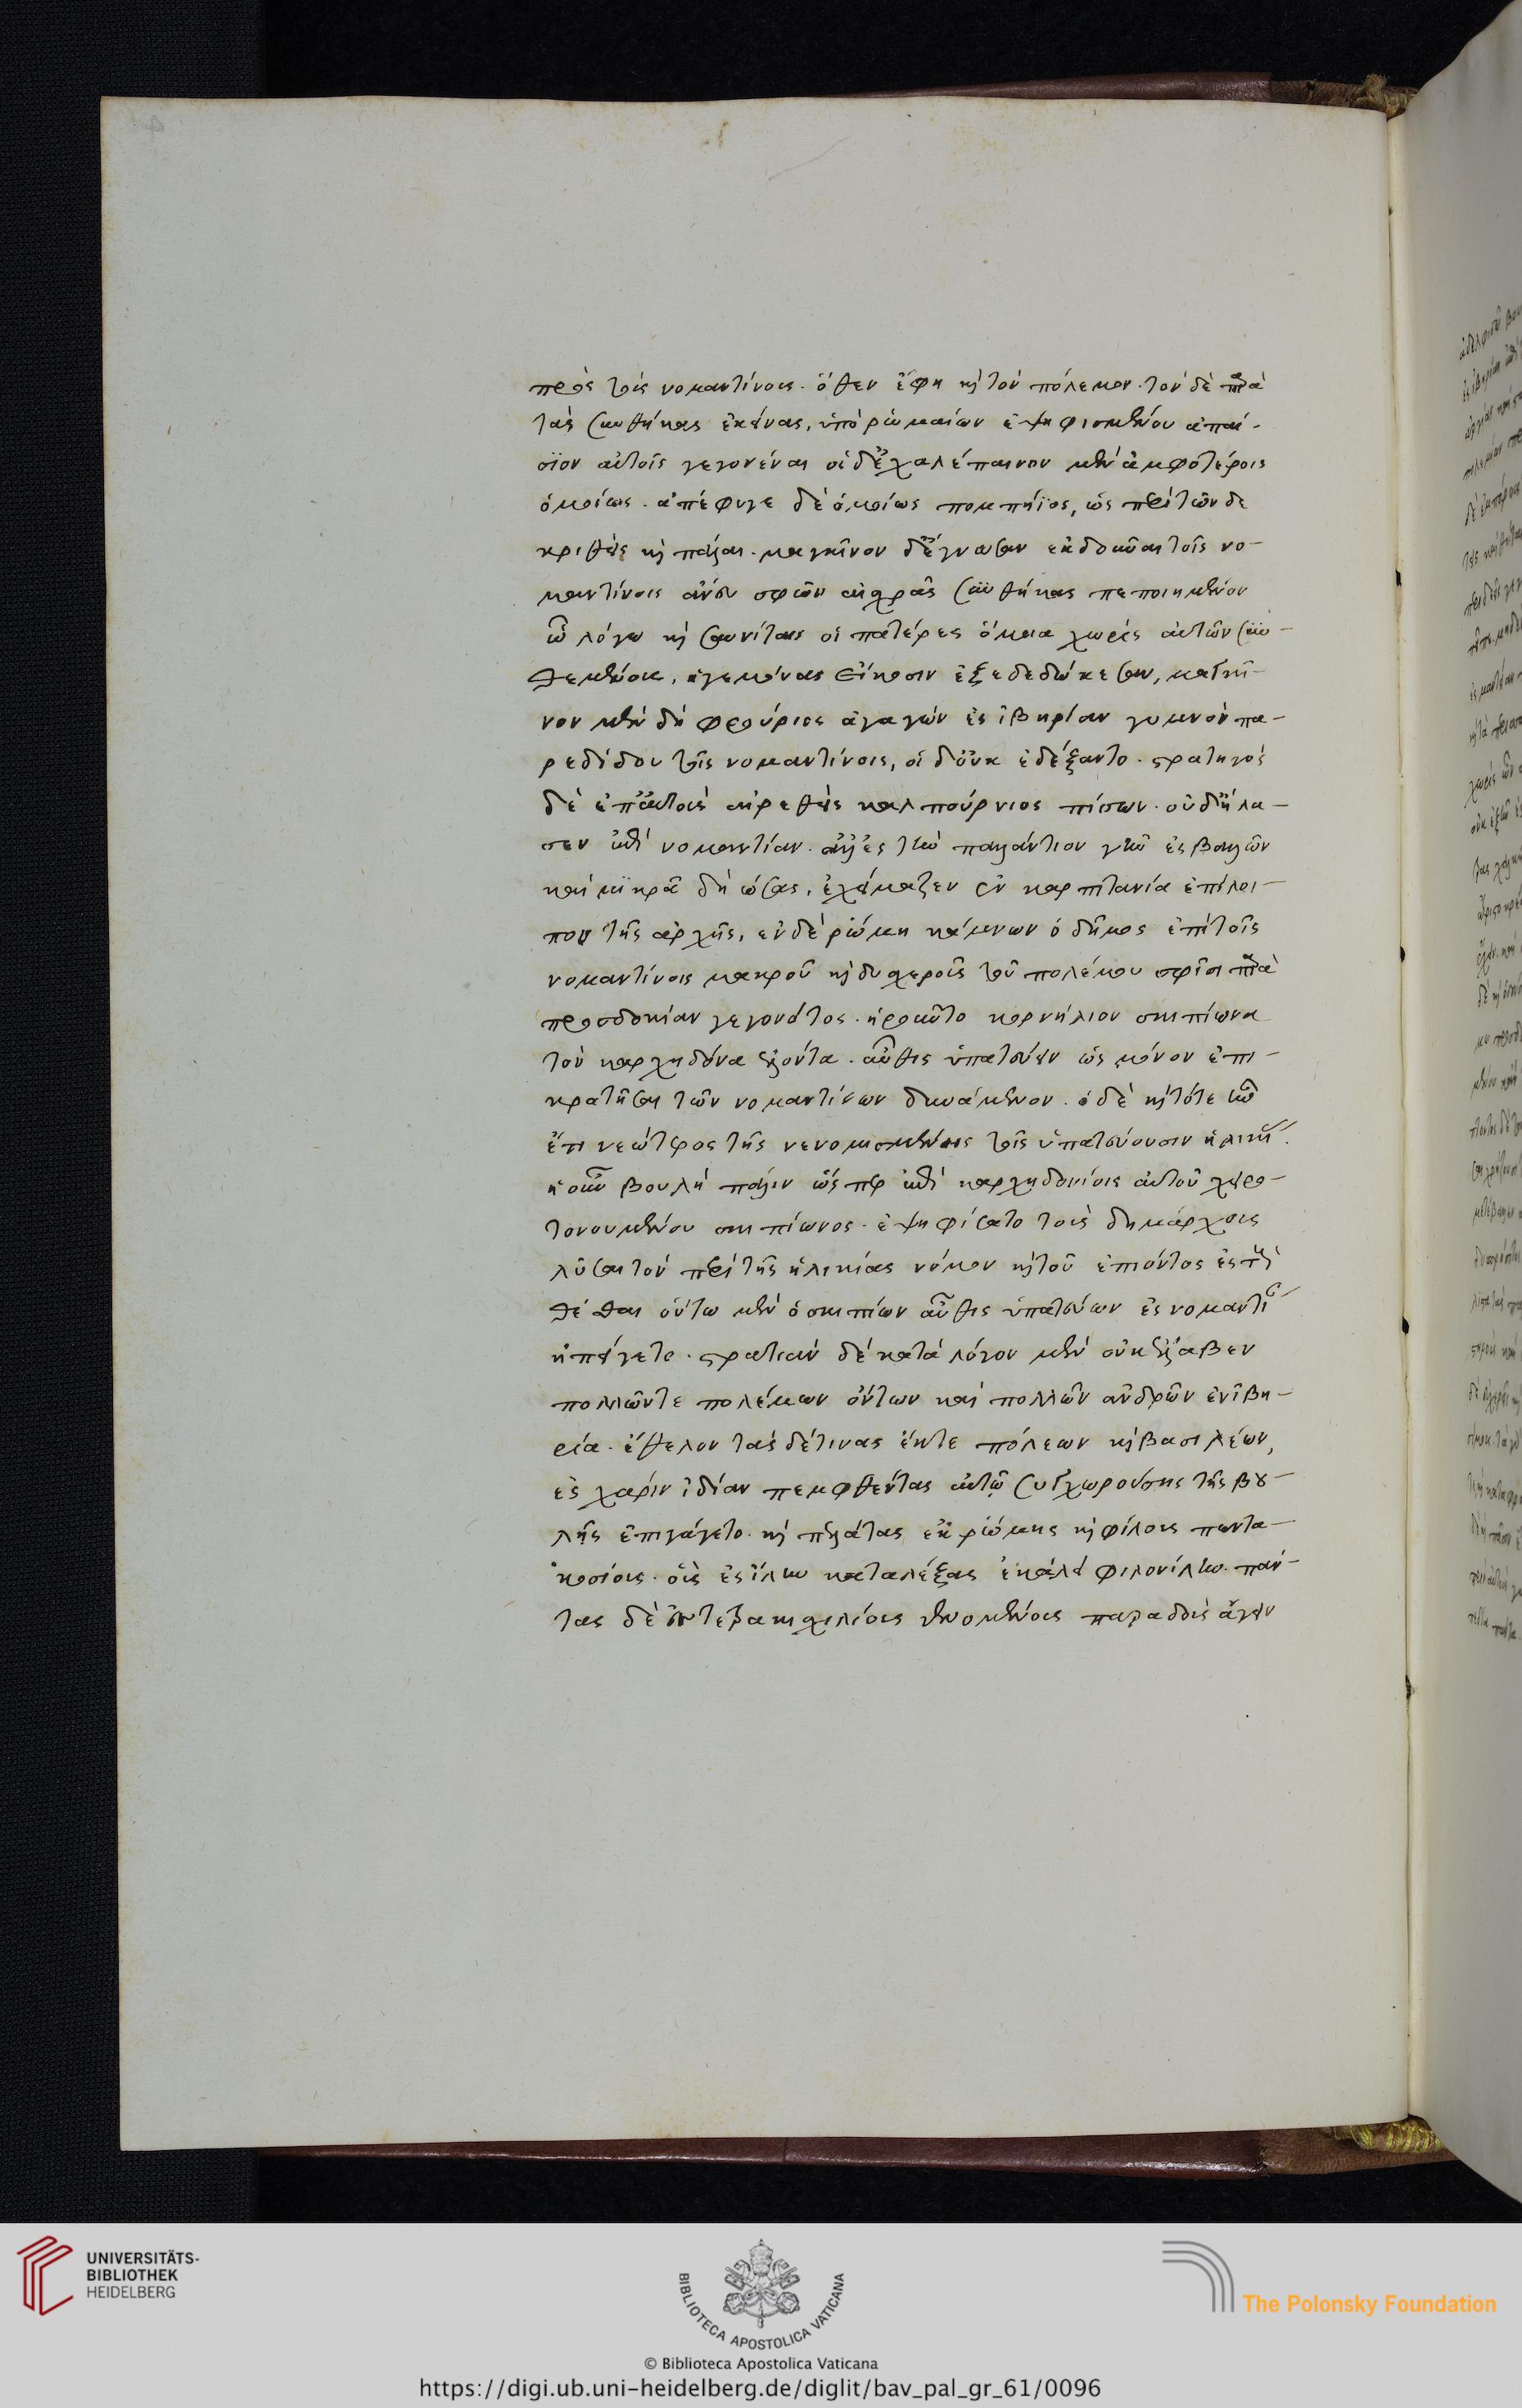 πρὸς τοὺς νομαντίνους. ὅθεν ἔφη κὶ τὸν πόλεμον. τὸν δὲ παρὰ
τὰς συνθήκας ἐκείνας, ὑπὸ ῥωμαίων ἐψηφισμένον ἀπαί-
σιον αὐτοῖς γεγονέναι οἱ δ' ἐχαλέπαινον μὲν ἀμφοτέροις
ὁμοίως. ἀπέφυγε δὲ ὁμοίως πομπήϊος, ὡς περὶ τῶνδε
κριθεὶς κὶ πάλαι. μαγκῖνον δ' ἔγνωσαν ἐκδοῦναι τοῖς νο-
μαντίνοις ἄνευ σφῶν αἰσχρὰς συνθήκας πεποιημένον
ὧ λόγω κὶ σαυνίταις οἱ πατέρες ὅμοια χωρὶς αὐτῶν συν-
θεμένους, ἡγεμόνας εἴκοσιν ἐξεδεδώκεσαν, μαγκῖ-
νον μὲν δὴ φρούριος ἀγαγὼν ἐς ἰβηρίαν γυμνὸν πα-
ρεδίδου τοῖς νομαντίνοις, οἱ δ' οὐκ ἐδέξαντο. στρατηγὸς
δὲ ἐπ' αὐτοὺς αἱρεθεὶς καλπούρνιος πίσων. οὐδ' ἤλα-
σεν ἐπὶ νομαντίαν. ἀλλ' ἐς τὴν παλλάντιον γῆν ἐσβαλὼν
καὶ μικρὰ δηώσας, ἐχείμαζεν ἐν καρπιτανία ἐπίλοι-
πον τῆς ἀρχῆς, ἐν δὲ ῥώμη κάμνων ὁ δῆμος ἐπὶ τοῖς
νομαντίνοις μακροῦ κὶ δυσχεροῦς τοῦ πολέμου σφῖσι παρὰ
προσδοκίαν γεγονότος. ἡροῦντο κορνήλιον σκιπίωνα
τὸν καρχηδόνα ἑλόντα. αὖθις ὑπατεύειν ὡς μόνον ἐπι-
κρατῆσαι τῶν νομαντίνων δυνάμενον. ὁ δὲ κὶ τότε ἦν
ἔτι νεώτερος τῆς νενομισμένης τοῖς ὑπατεύουσιν ἡλικί.
ἡ οὖν βουλὴ πάλιν ὥσπερ ἐπὶ καρχηδονίοις αὐτοῦ χειρο-
τονουμένου σκιπίωνος. ἐψηφίσατο τοὺς δημάρχους
λῦσαι τὸν περὶ τῆς ἡλικίας νόμον κὶ τοῦ ἐπιόντος ἔτους
θέσθαι οὕτω μὲν ὁ σκιπίων αὖθις ὑπατεύων ἐς νομαντί
ἠπείγετο. στρατιὰν δὲ κατάλογον μὲν οὐκ ἔλαβεν
πολλῶν τε πολέμων ὄντων καὶ πολλῶν ἀνδρῶν ἐν ἰβη-
ρία. ἐθελοντὰς δέ τινας ἔκ τε πόλεων κὶ βασιλέων,
ἐς χάριν ἰδίαν πεμφθέντας αὐτῷ συγχωρούσης τῆς βου-
λῆς ἐπηγάγετο. κὶ πελάτας ἐκ ῥώμης κὶ φίλους πεντα-
κοσίους. οὓς ἐς ἴλην καταλέξας ἐκάλει φιλονίλην. πάν-
τας δὲ ἐς τετρακισχιλίους γενομένους παραδοὺς ἄγειν
UNIVERSITÄTS-
BIBLIOTHEK
HEIDELBERG
BIBLIOTECA APOSTOLICA VATICANA
The Polonsky Foundation
© Biblioteca Apostolica Vaticana
https://digi.ub.uni-heidelberg.de/diglit/bav_pal_gr_61/0096